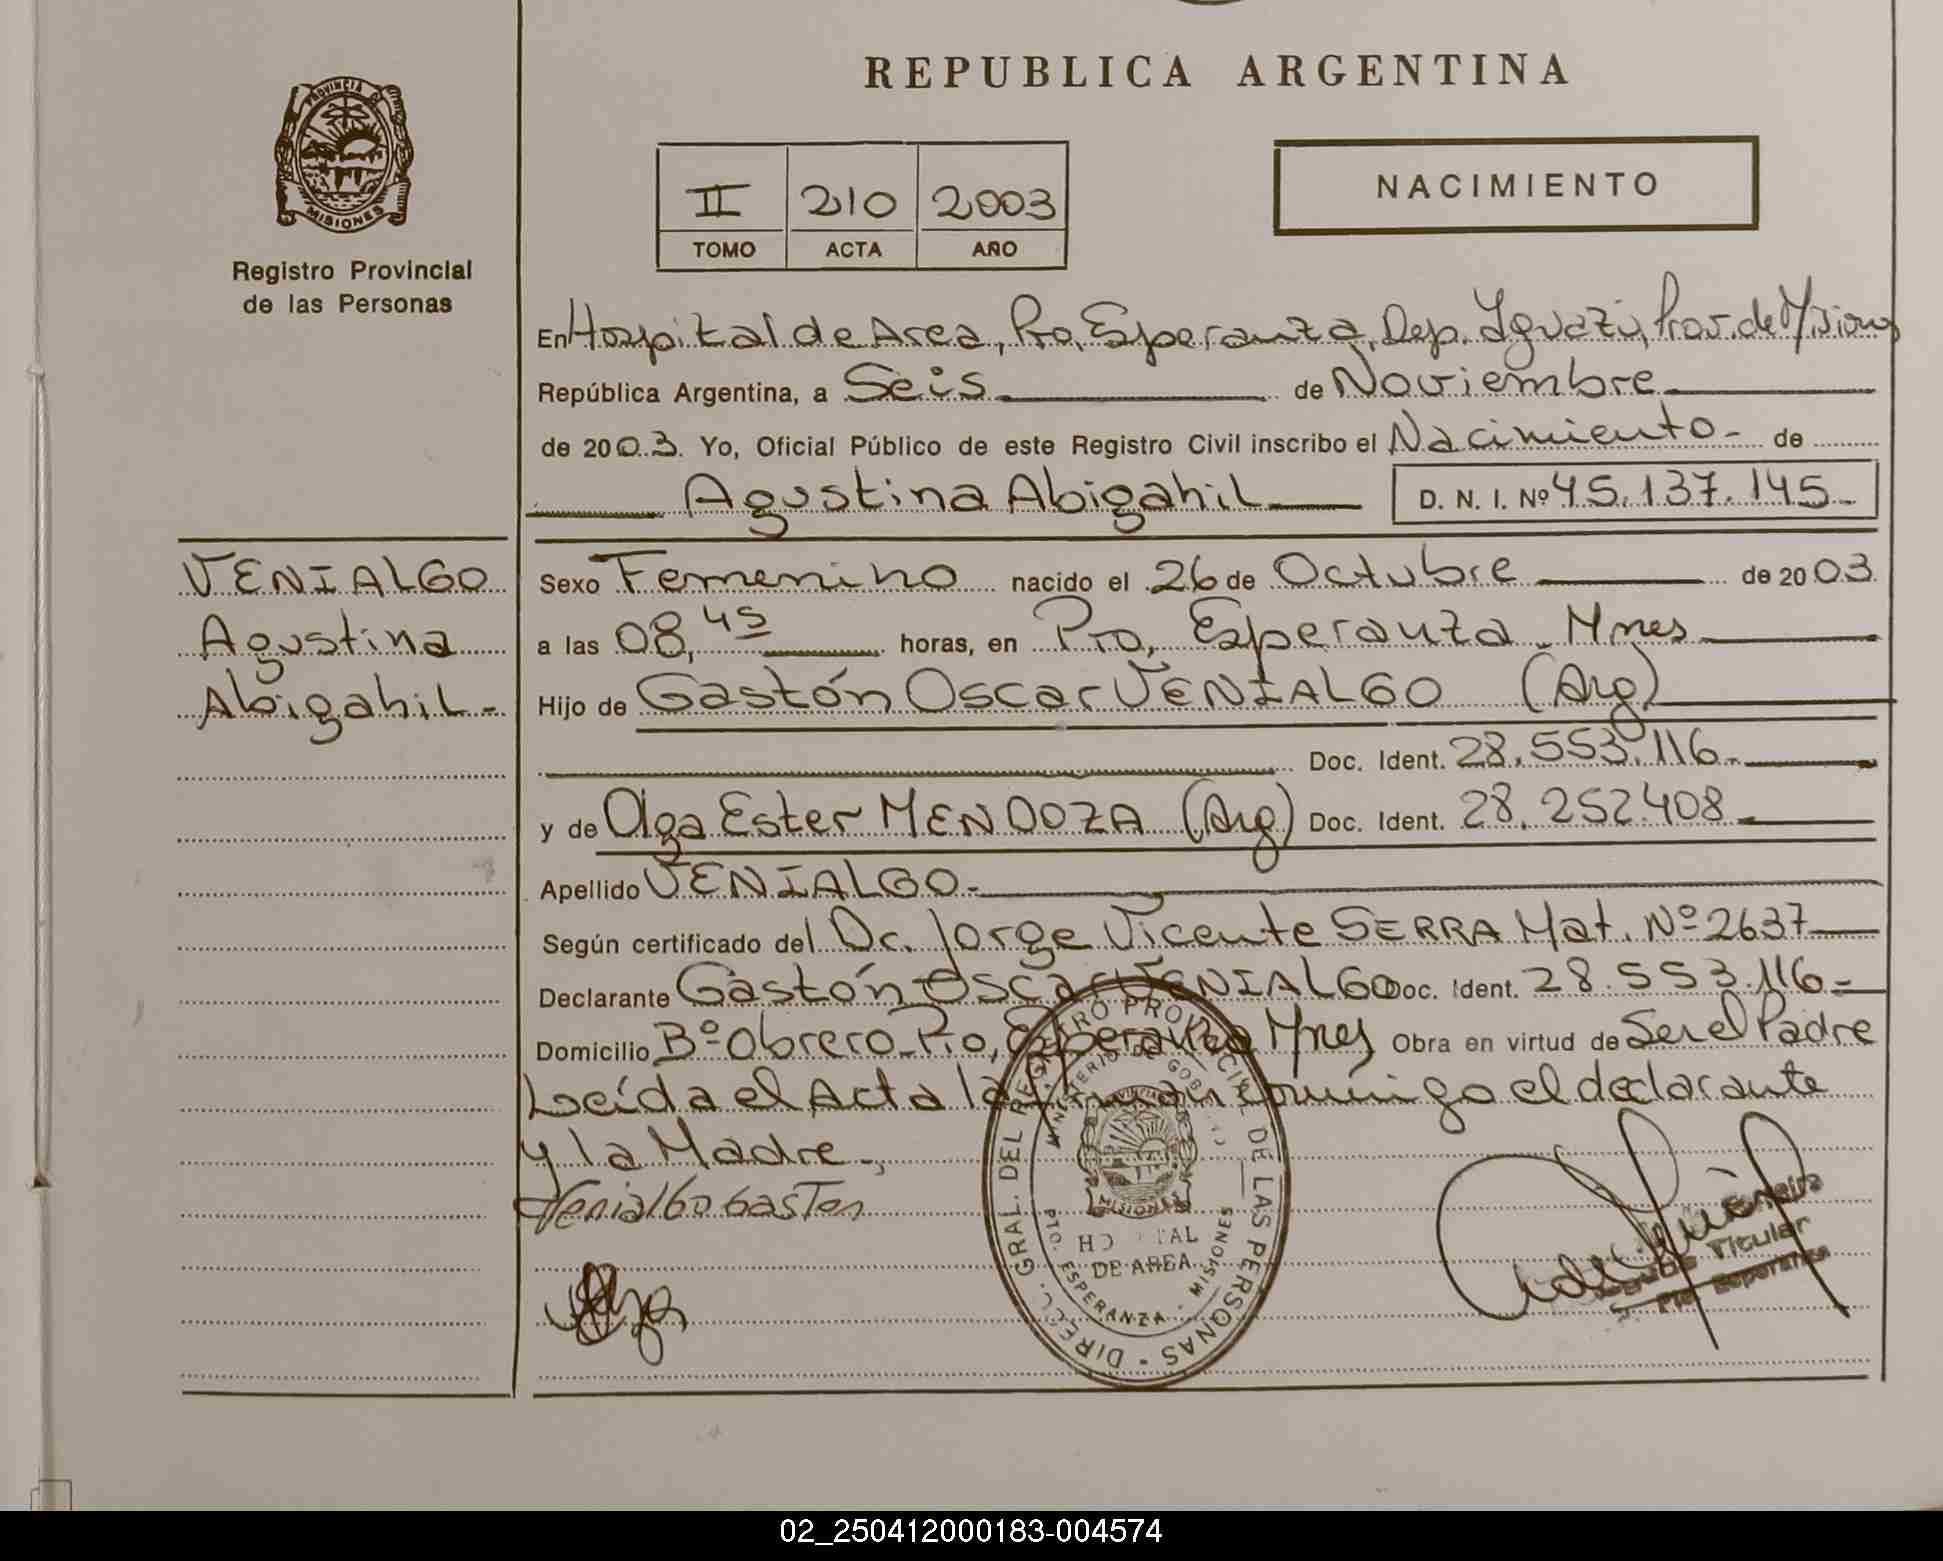 REPUBLICA ARGENTINA
PROVINCIA DE
MISIONES
Registro Provincial
de las Personas
II 210 2003
TOMO ACTA AÑO
NACIMIENTO
En Hospital de Area, Pto, Esperanza, Dep. Iguazú, Prov. de Misiones
República Argentina, a Seis de Noviembre
de 2003. Yo, Oficial Público de este Registro Civil inscribo el Nacimiento - de
Agustina Abigahil D. N. I. Nº 45.137.145-
VENIALGO
Agustina
Abigahil-
Sexo Femenino nacido el 26 de Octubre de 2003
a las 08,45 horas, en Pto, Esperanza - Mnes
Hijo de Gastón Oscar VENIALGO (Arg)
Doc. Ident. 28.553.116.-
y de Olga Ester MENDOZA (Arg) Doc. Ident. 28.252.408-
Apellido VENIALGO-
Según certificado del Dr. Jorge Vicente SERRA Mat. Nº 2637
Declarante Gastón Oscar VENIALGO Doc. Ident. 28.553.116=
Domicilio Bº Obrero - Pto, Esperanza Mnes Obra en virtud de Ser el Padre
Leída el Acta la firman conmigo el declarante
y la Madre.,
Venialgo Gaston
DIREC. GRAL. DEL REGISTRO PROVINCIAL DE LAS PERSONAS
MINISTERIO DE GOBIERNO
MISIONES
DE AREA
PTO. ESPERANZA - MISIONES
Titular
Pto Esperanza
02_250412000183-004574